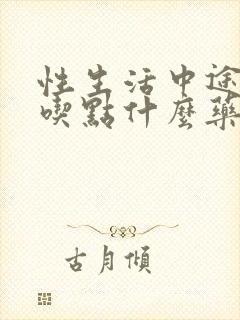 性生活中途
喫點什麼藥
古月傾